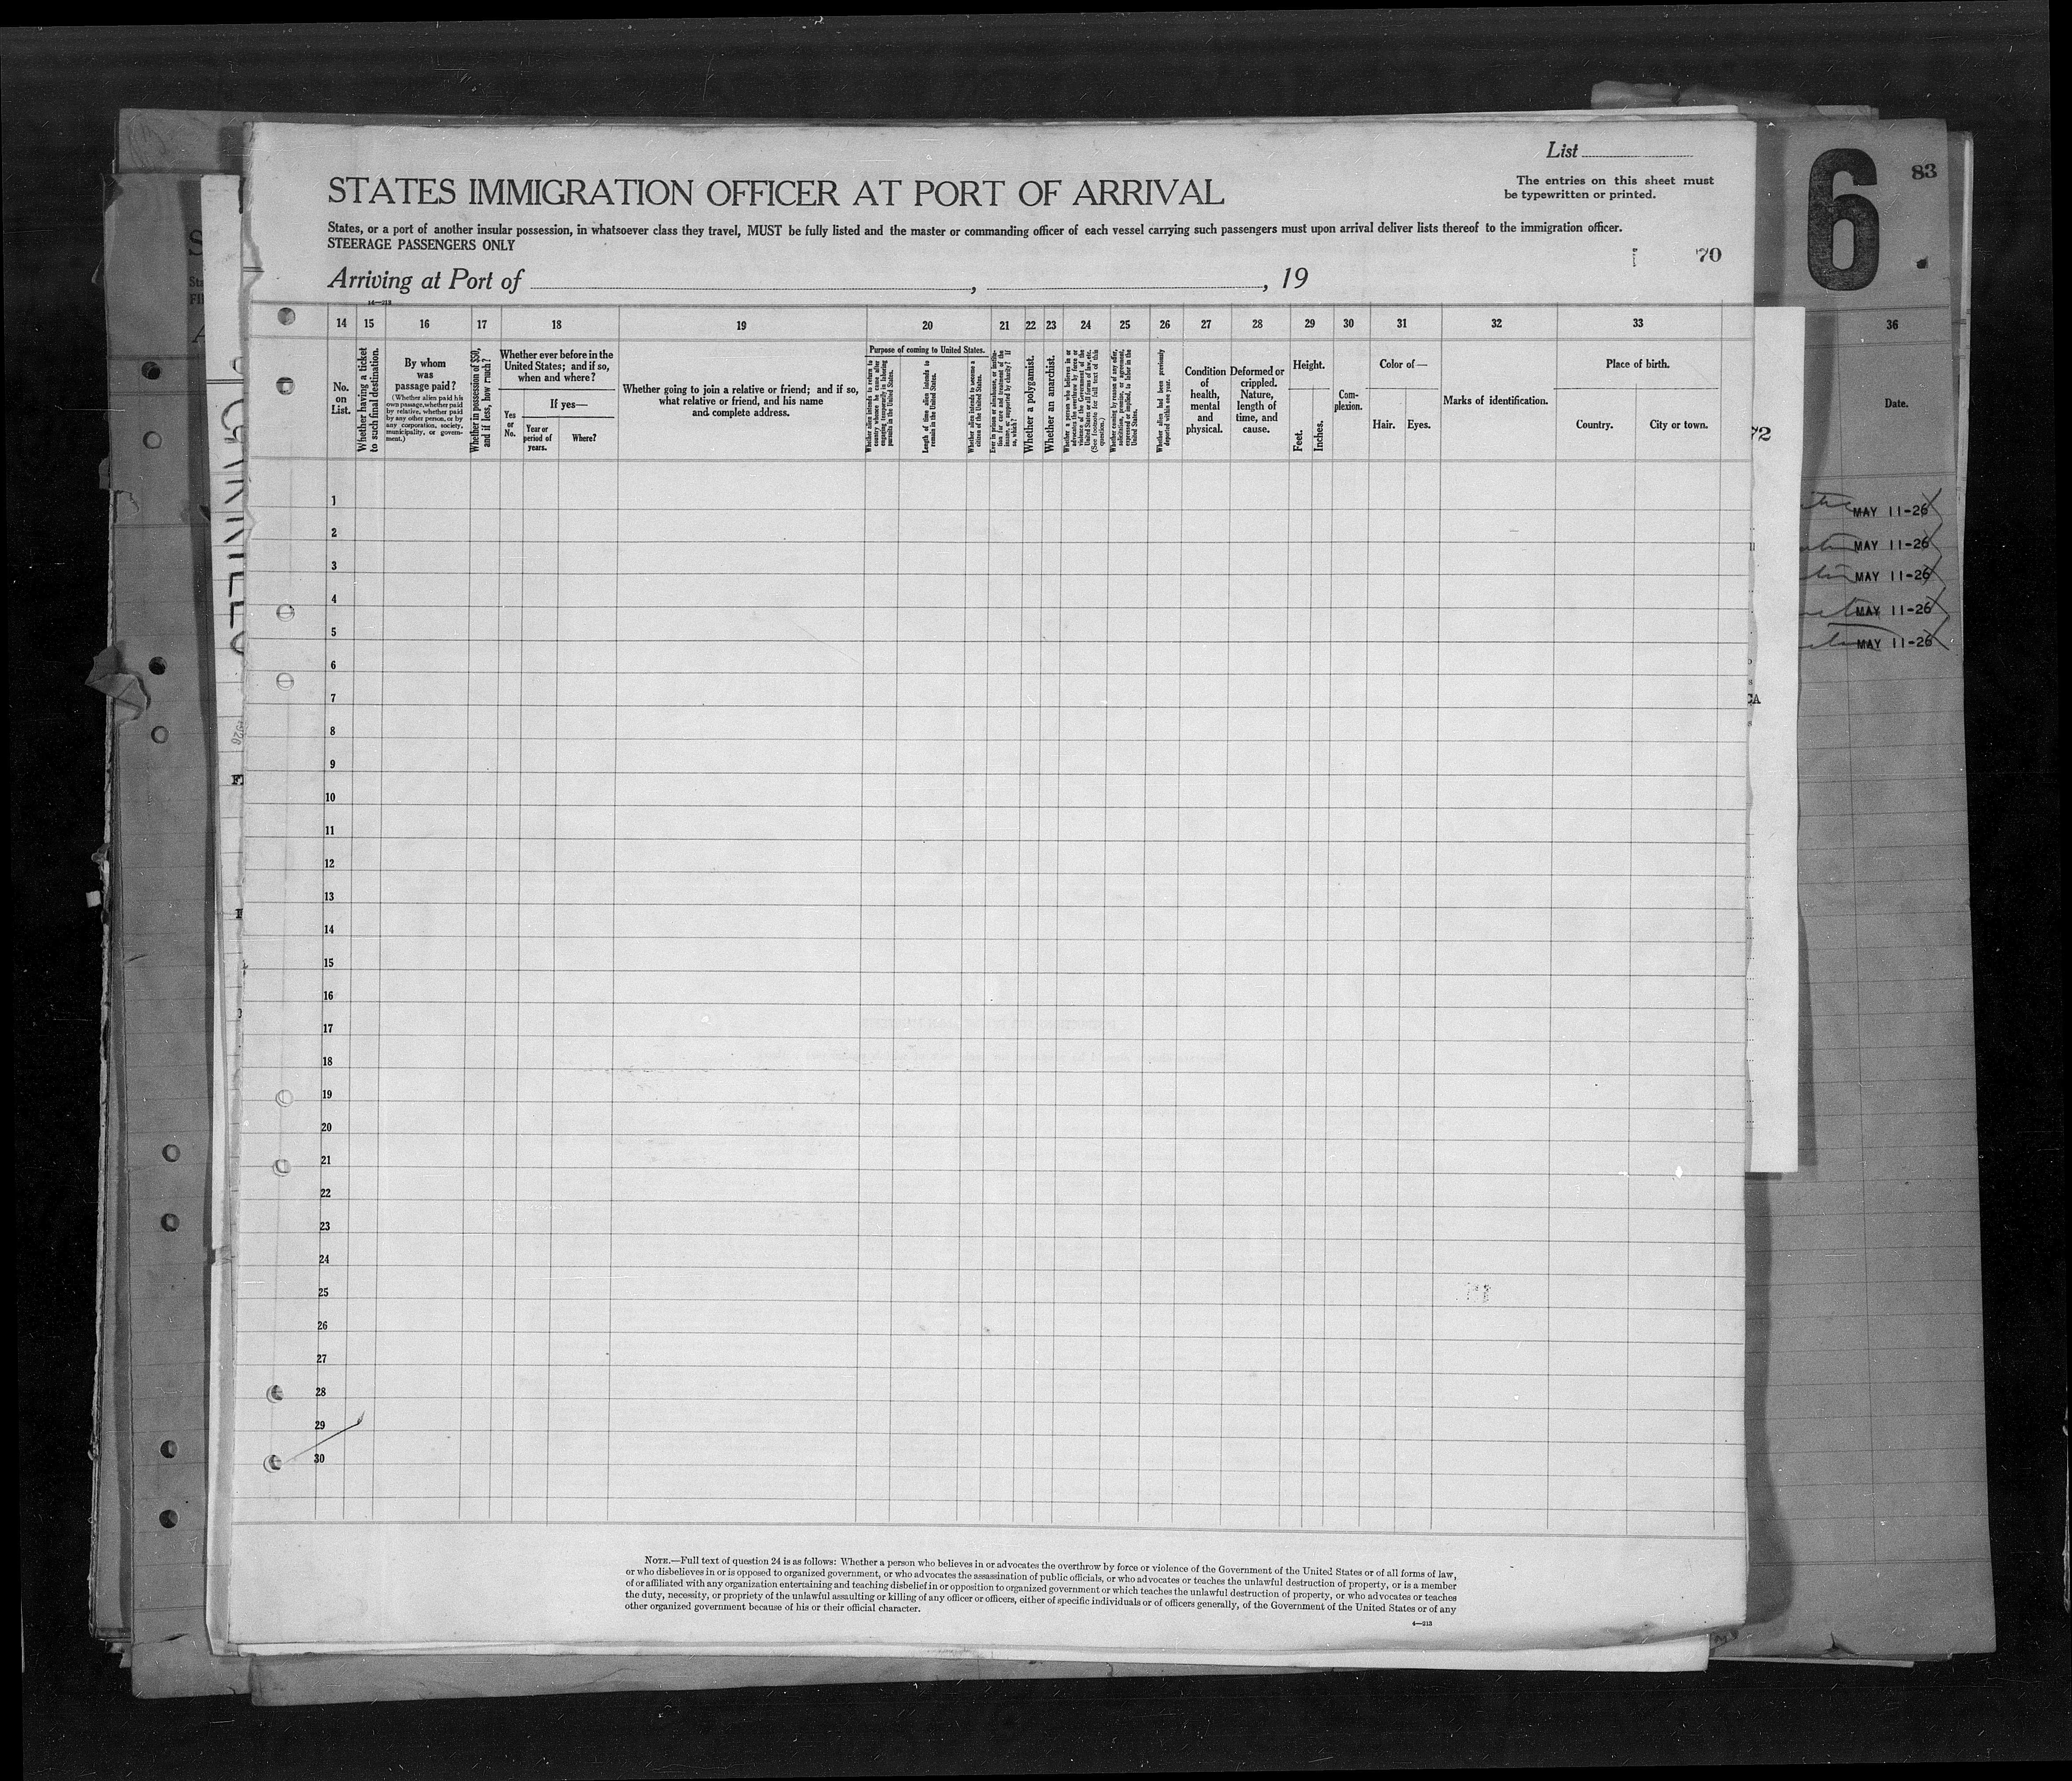 List
The entries on this sheet must
be typewritten or printed.
6
83
STATES IMMIGRATION OFFICER AT PORT OF ARRIVAL
States, or a port of another insular possession, in whatsoever class they travel, MUST be fully listed and the master or commanding officer of each vessel carrying such passengers must upon arrival deliver lists thereof to the immigration officer.
STEERAGE PASSENGERS ONLY
70
Arriving at Port of , , 19
14—213
14 15 16 17 18 19 20 21 22 23 24 25 26 27 28 29 30 31 32 33 36
No.
on
List.
Whether having a ticket
to such final destination.
By whom
was
passage paid?
(Whether alien paid his
own passage, whether paid
by relative, whether paid
by any other person, or by
any corporation, society,
municipality, or govern-
ment.)
Whether in possession of $50,
and if less, how much?
Whether ever before in the
United States; and if so,
when and where?
Yes
or
No.
If yes—
Year or
period of
years.
Where?
Whether going to join a relative or friend; and if so,
what relative or friend, and his name
and complete address.
Purpose of coming to United States.
Whether alien intends to return to
country whence he came after
engaging temporarily in laboring
pursuits in the United States.
Length of time alien intends to
remain in the United States.
Whether alien intends to become a
citizen of the United States.
Ever in prison or almshouse, or institu-
tion for care and treatment of the
insane, or supported by charity? If
so, which?
Whether a polygamist.
Whether an anarchist.
Whether a person who believes in or
advocates the overthrow by force or
violence of the Government of the
United States or all forms of law, etc.
(See footnote for full text of this
question.)
Whether coming by reason of any offer,
solicitation, promise, or agreement,
expressed or implied, to labor in the
United States.
Whether alien had been previously
deported within one year.
Condition
of
health,
mental
and
physical.
Deformed or
crippled.
Nature,
length of
time, and
cause.
Height.
Feet.
Inches.
Com-
plexion.
Color of—
Hair.
Eyes.
Marks of identification.
Place of birth.
Country.
City or town.
Date.
72
1
2
3
4
5
6
7
8
9
10
11
12
13
14
15
16
17
18
19
20
21
22
23
24
25
26
27
28
29
30
MAY 11-26
MAY 11-26
MAY 11-26
MAY 11-26
MAY 11-26
CA
NOTE.—Full text of question 24 is as follows: Whether a person who believes in or advocates the overthrow by force or violence of the Government of the United States or of all forms of law,
or who disbelieves in or is opposed to organized government, or who advocates the assassination of public officials, or who advocates or teaches the unlawful destruction of property, or is a member
of or affiliated with any organization entertaining and teaching disbelief in or opposition to organized government or which teaches the unlawful destruction of property, or who advocates or teaches
the duty, necessity, or propriety of the unlawful assaulting or killing of any officer or officers, either of specific individuals or of officers generally, of the Government of the United States or of any
other organized government because of his or their official character.
4—213